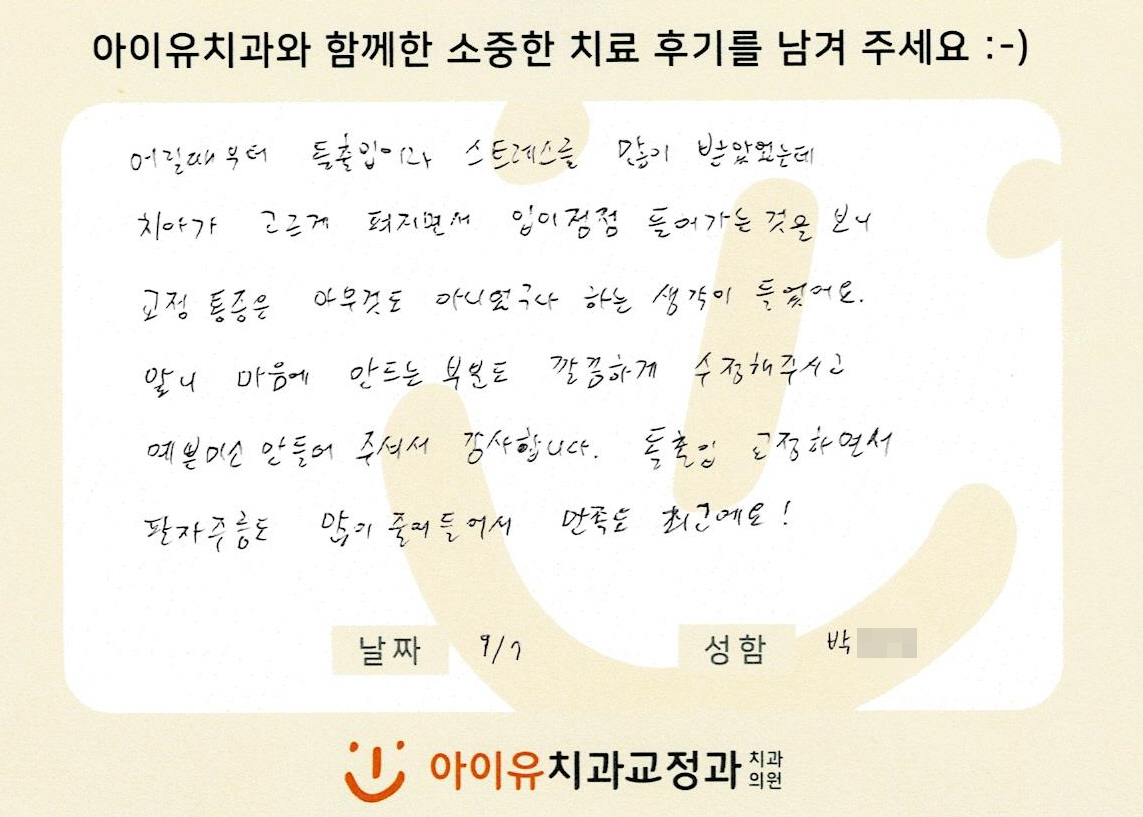 아이유치과와 함께한 소중한 치료 후기를 남겨 주세요 :-)
어릴때부터 돌출입이라 스트레스를 많이 받았었는데
치아가 고르게 펴지면서 입이점점 들어가는 것을 보니
교정 통증은 아무것도 아니었구나 하는 생각이 들었어요.
앞니 마음에 안드는 부분도 깔끔하게 수정해주시고
예쁜미소 만들어 주셔서 감사합니다. 돌출입 교정하면서
팔자주름도 많이 줄어들어서 만족도 최고예요!
날짜 9/7 성함 박
아이유치과교정과 치과의원